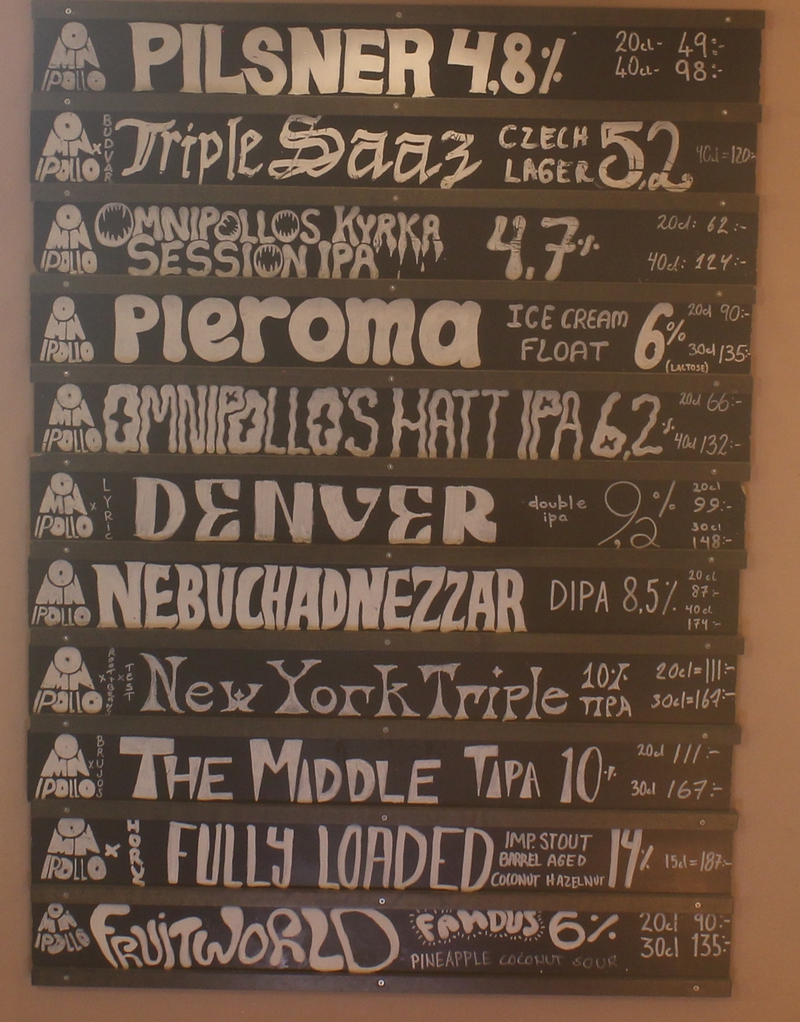 OMNIPOLLO PILSNER 4,8% 20cl- 49:-
40cl- 98:-
OMNIPOLLO x BUDVAR Triple Saaz CZECH LAGER 5,2 40cl=120:-
OMNIPOLLO OMNIPOLLOS KYRKA 4,7% 20cl: 62:-
SESSION IPA 40cl: 124:-
OMNIPOLLO Pleroma ICE CREAM FLOAT 6% (LACTOSE) 20cl 90:-
30cl 135:-
OMNIPOLLO OMNIPOLLO'S HATT IPA 6,2% 20cl 66:-
40cl 132:-
OMNIPOLLO x LYRIC DENVER double ipa 9,2% 20cl 99:-
30cl 148:-
OMNIPOLLO NEBUCHADNEZZAR DIPA 8,5% 20cl 87:-
40cl 174:-
OMNIPOLLO x x TEST New York Triple 10% TIPA 20cl=111:-
30cl=167:-
OMNIPOLLO x BRUJOS THE MIDDLE TIPA 10% 20cl 111:-
30cl 167:-
OMNIPOLLO x HORUS FULLY LOADED IMP STOUT BARREL AGED COCONUT HAZELNUT 14% 15cl=187:-
OMNIPOLLO FRUITWORLD FAMOUS 6% 20cl 90:-
PINEAPPLE COCONUT SOUR 30cl 135:-